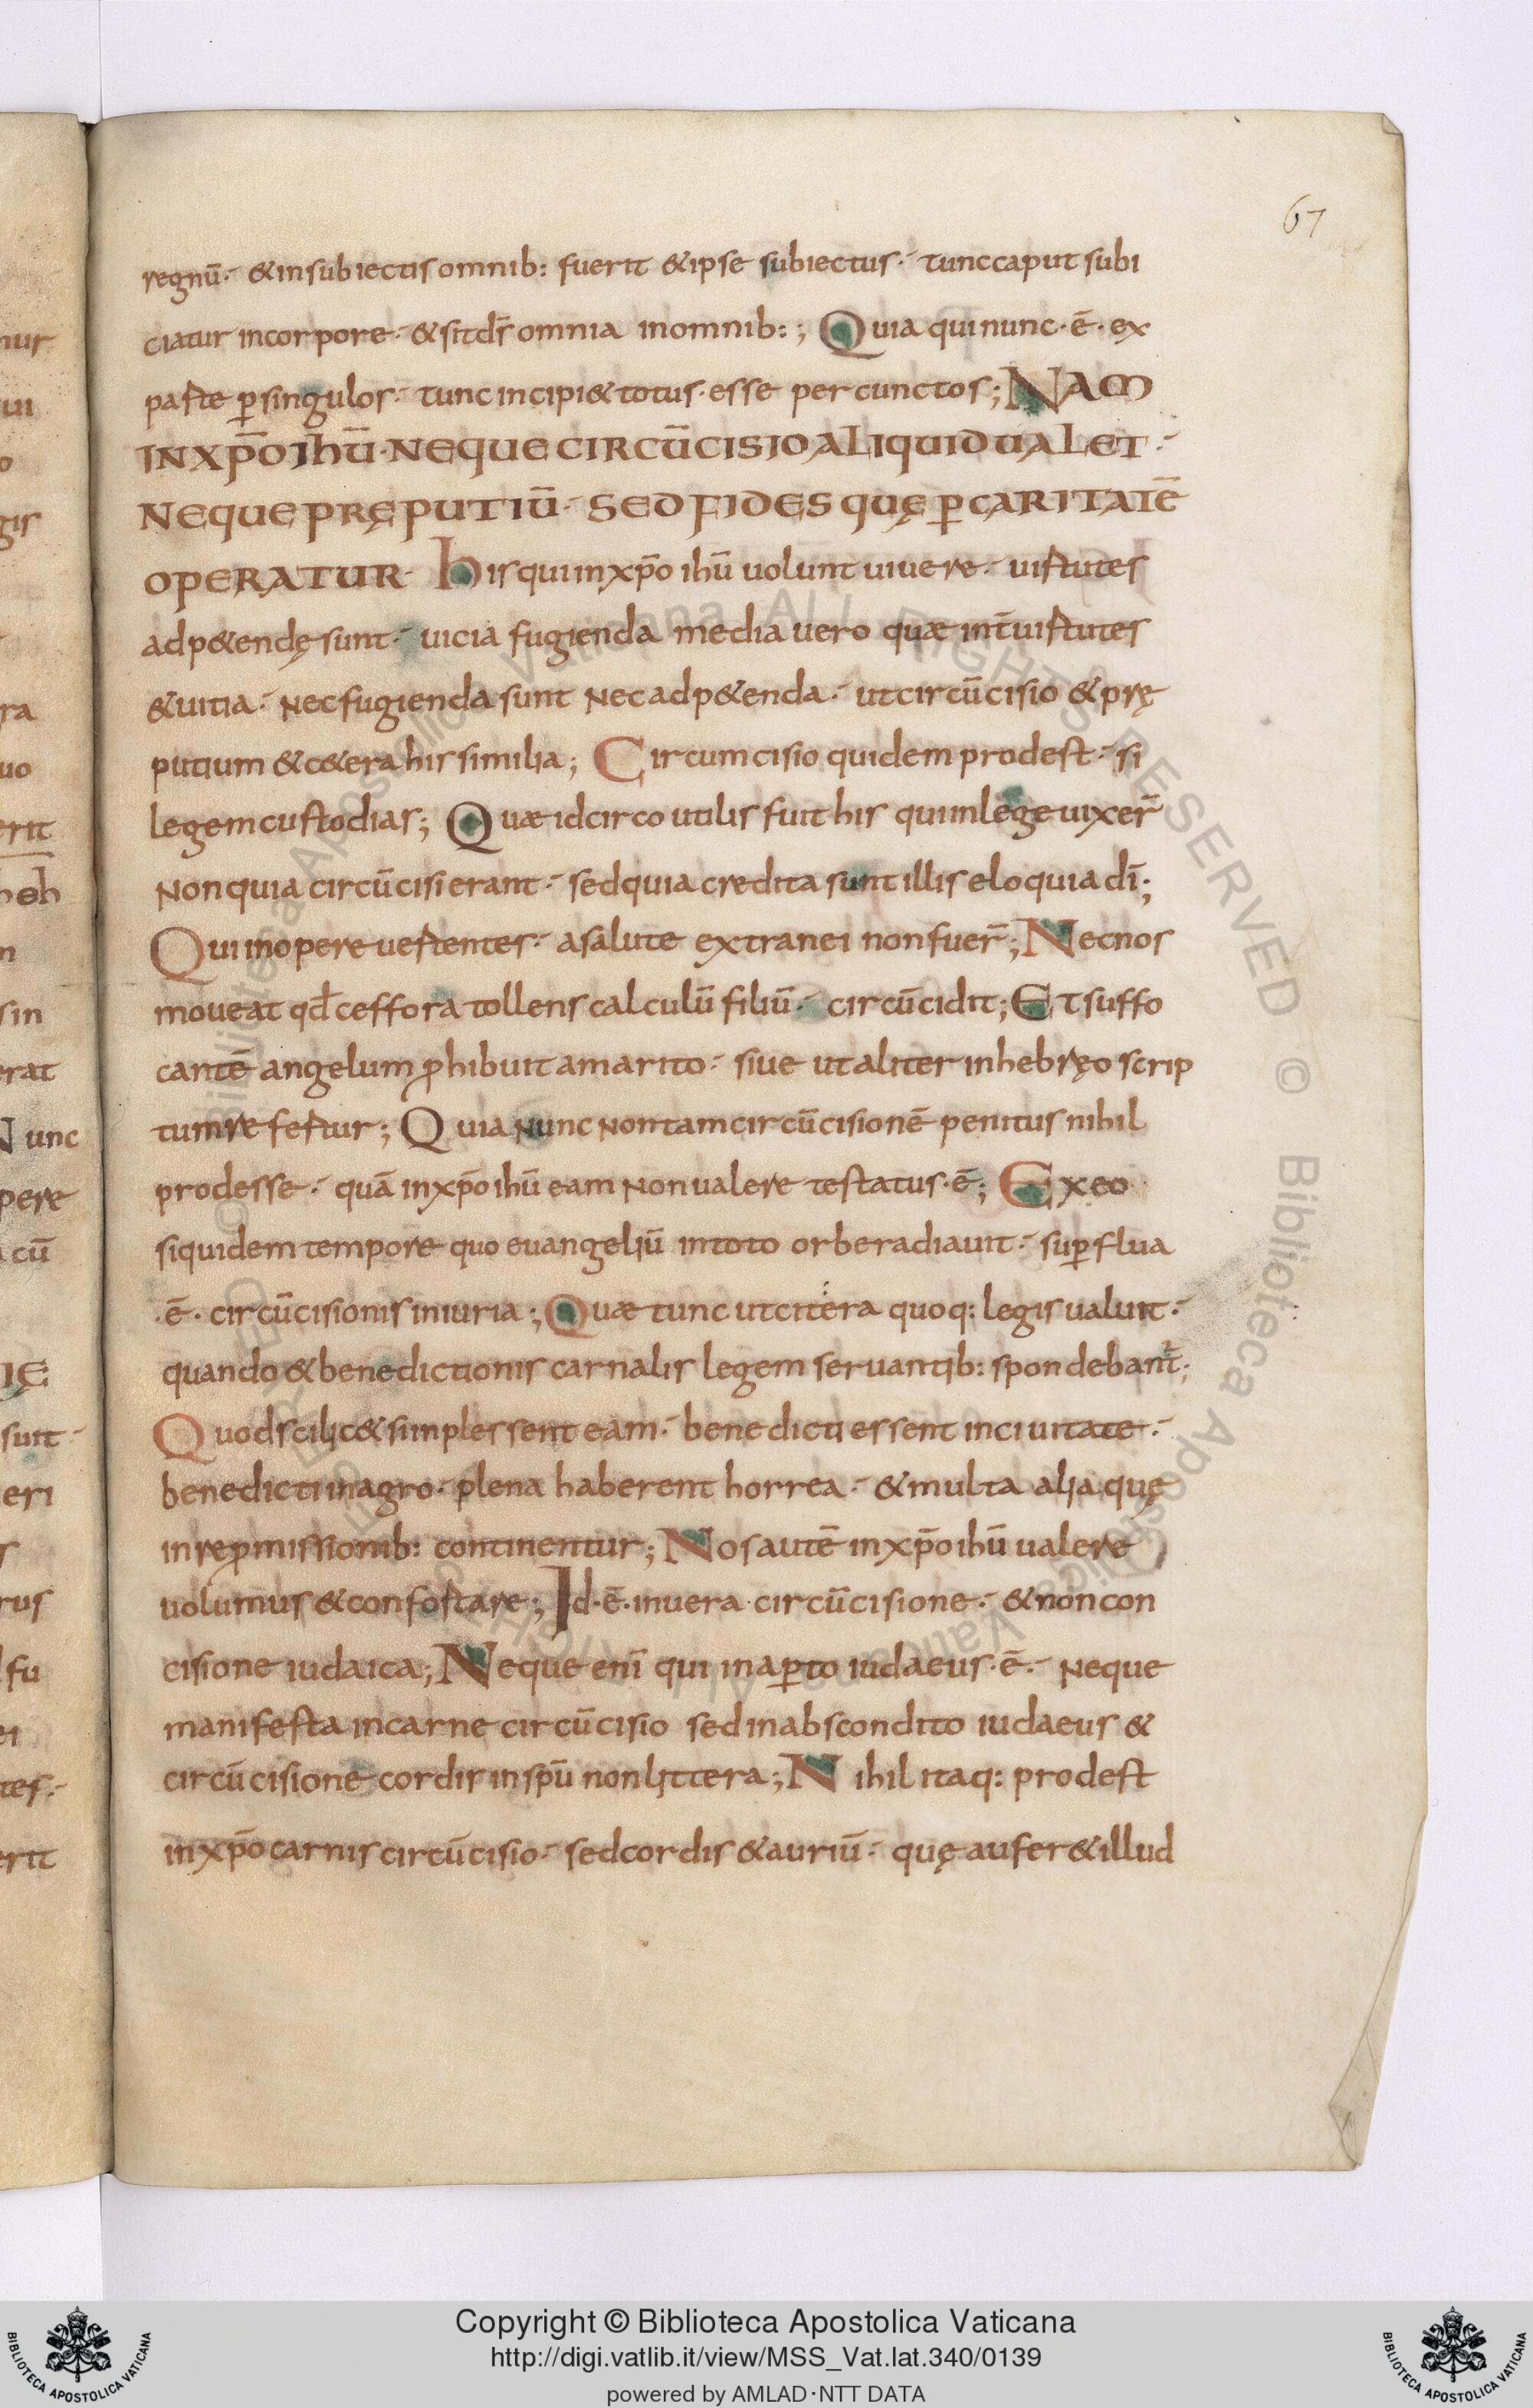 67
regnū · & in subiectis omnib: fuerit & ipse subiectus · tunc caput subi
ciatur in corpore · & sit d̄s omnia in omnib: ; Quia qui nunc · ē · ex
parte ꝑ singulos · tunc incipi& totus · esse per cunctos ; NAM
IN XP̄O IHŪ · NEQUE CIRCŪCISIO ALIQUID UALET ·
NEQUE PRĘPUTIŪ · SED FIDES QUĘ Ꝑ CARITATĒ
OPERATUR · His qui in xp̄o ihū uolunt uiuere · uirtutes
adp&endę sunt · uicia fugienda media uero quæ int̄ uirtutes
& uitia · Nec fugienda sunt Nec adp&enda · ut circūcisio & prę
putium & c&era his similia ; Circumcisio quidem prodest · si
legem custodias ; Quæ idcirco utilis fuit his qui in lege uixer̄
Non quia circūcisi erant · sed quia credita sunt illis eloquia dī ;
Qui in opere uertentes · a salute extranei non fuer̄ ; Nec nos
moueat qd̄ ceffora tollens calculū filiū · circūcidit ; Et suffo
cantē angelum ꝓhibuit a marito · siue ut aliter in hebręo scrip
tum refertur ; Quia Nunc Non tam circūcisionē penitus nihil
prodesse · quā in xp̄o ihū eam Non ualere testatus · ē ; Ex eo
siquidem tempore quo euangeliū in toto orbe radiauit · suꝑflua
· ē · circūcisionis iniuria ; Quæ tunc ut citera quoq: legis ualuit ·
quando & benedictionis carnalis legem seruantib: spondebant̄ ;
Quod scilic& si implessent eam · benedicti essent in ciuitate ·
benedicti in agro · plena haberent horrea · & multa alia quę
in reꝓmissionib: continentur ; Nos autē in xp̄o ihū ualere
uolumus & confortare ; Id · ē · in uera circūcisione · & non con
cisione iudaica ; Neque enī qui in aꝑto iudaeus · ē · Neque
manifesta in carne circūcisio sed in abscondito iudaeus &
circūcisione cordis in spū non littera ; Nihil itaq: prodest
in xp̄o carnis circūcisio · sed cordis & auriū · quę aufer& illud
nur
ui
o
gis
ra
uo
erit
heb
n
sin
erat
Nunc
pere
cū
IĘ
suit ·
eri
rus
fu
ei
tes ·
erit
Copyright © Biblioteca Apostolica Vaticana
http://digi.vatlib.it/view/MSS_Vat.lat.340/0139
powered by AMLAD·NTT DATA
BIBLIOTECA APOSTOLICA VATICANA
BIBLIOTECA APOSTOLICA VATICANA